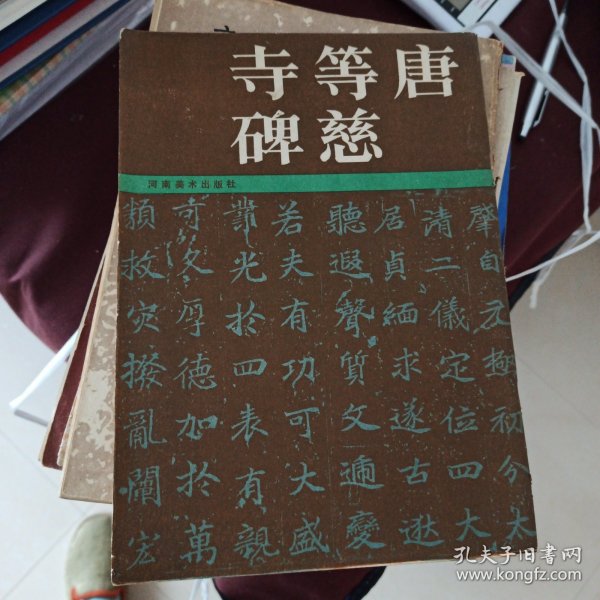 唐
等慈
寺碑
河南美术出版社
肇自元极初分太
清二仪定位四大
居贞缅求遂古逖
聽遐聲質文遞變
若夫有功可大盛
業光於四表有親
可久厚德加於萬
類救灾撥亂闡宏
孔夫子旧书网
www.kongfz.com